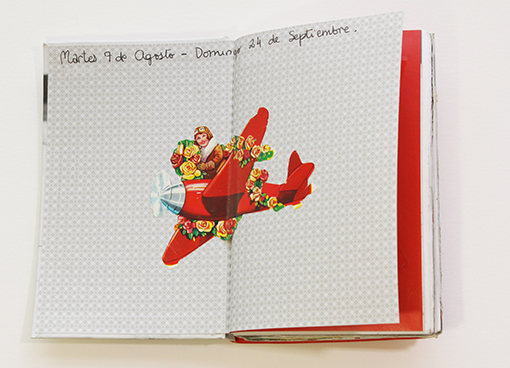 Martes 9 de Agosto - Domingo 24 de Septiembre.